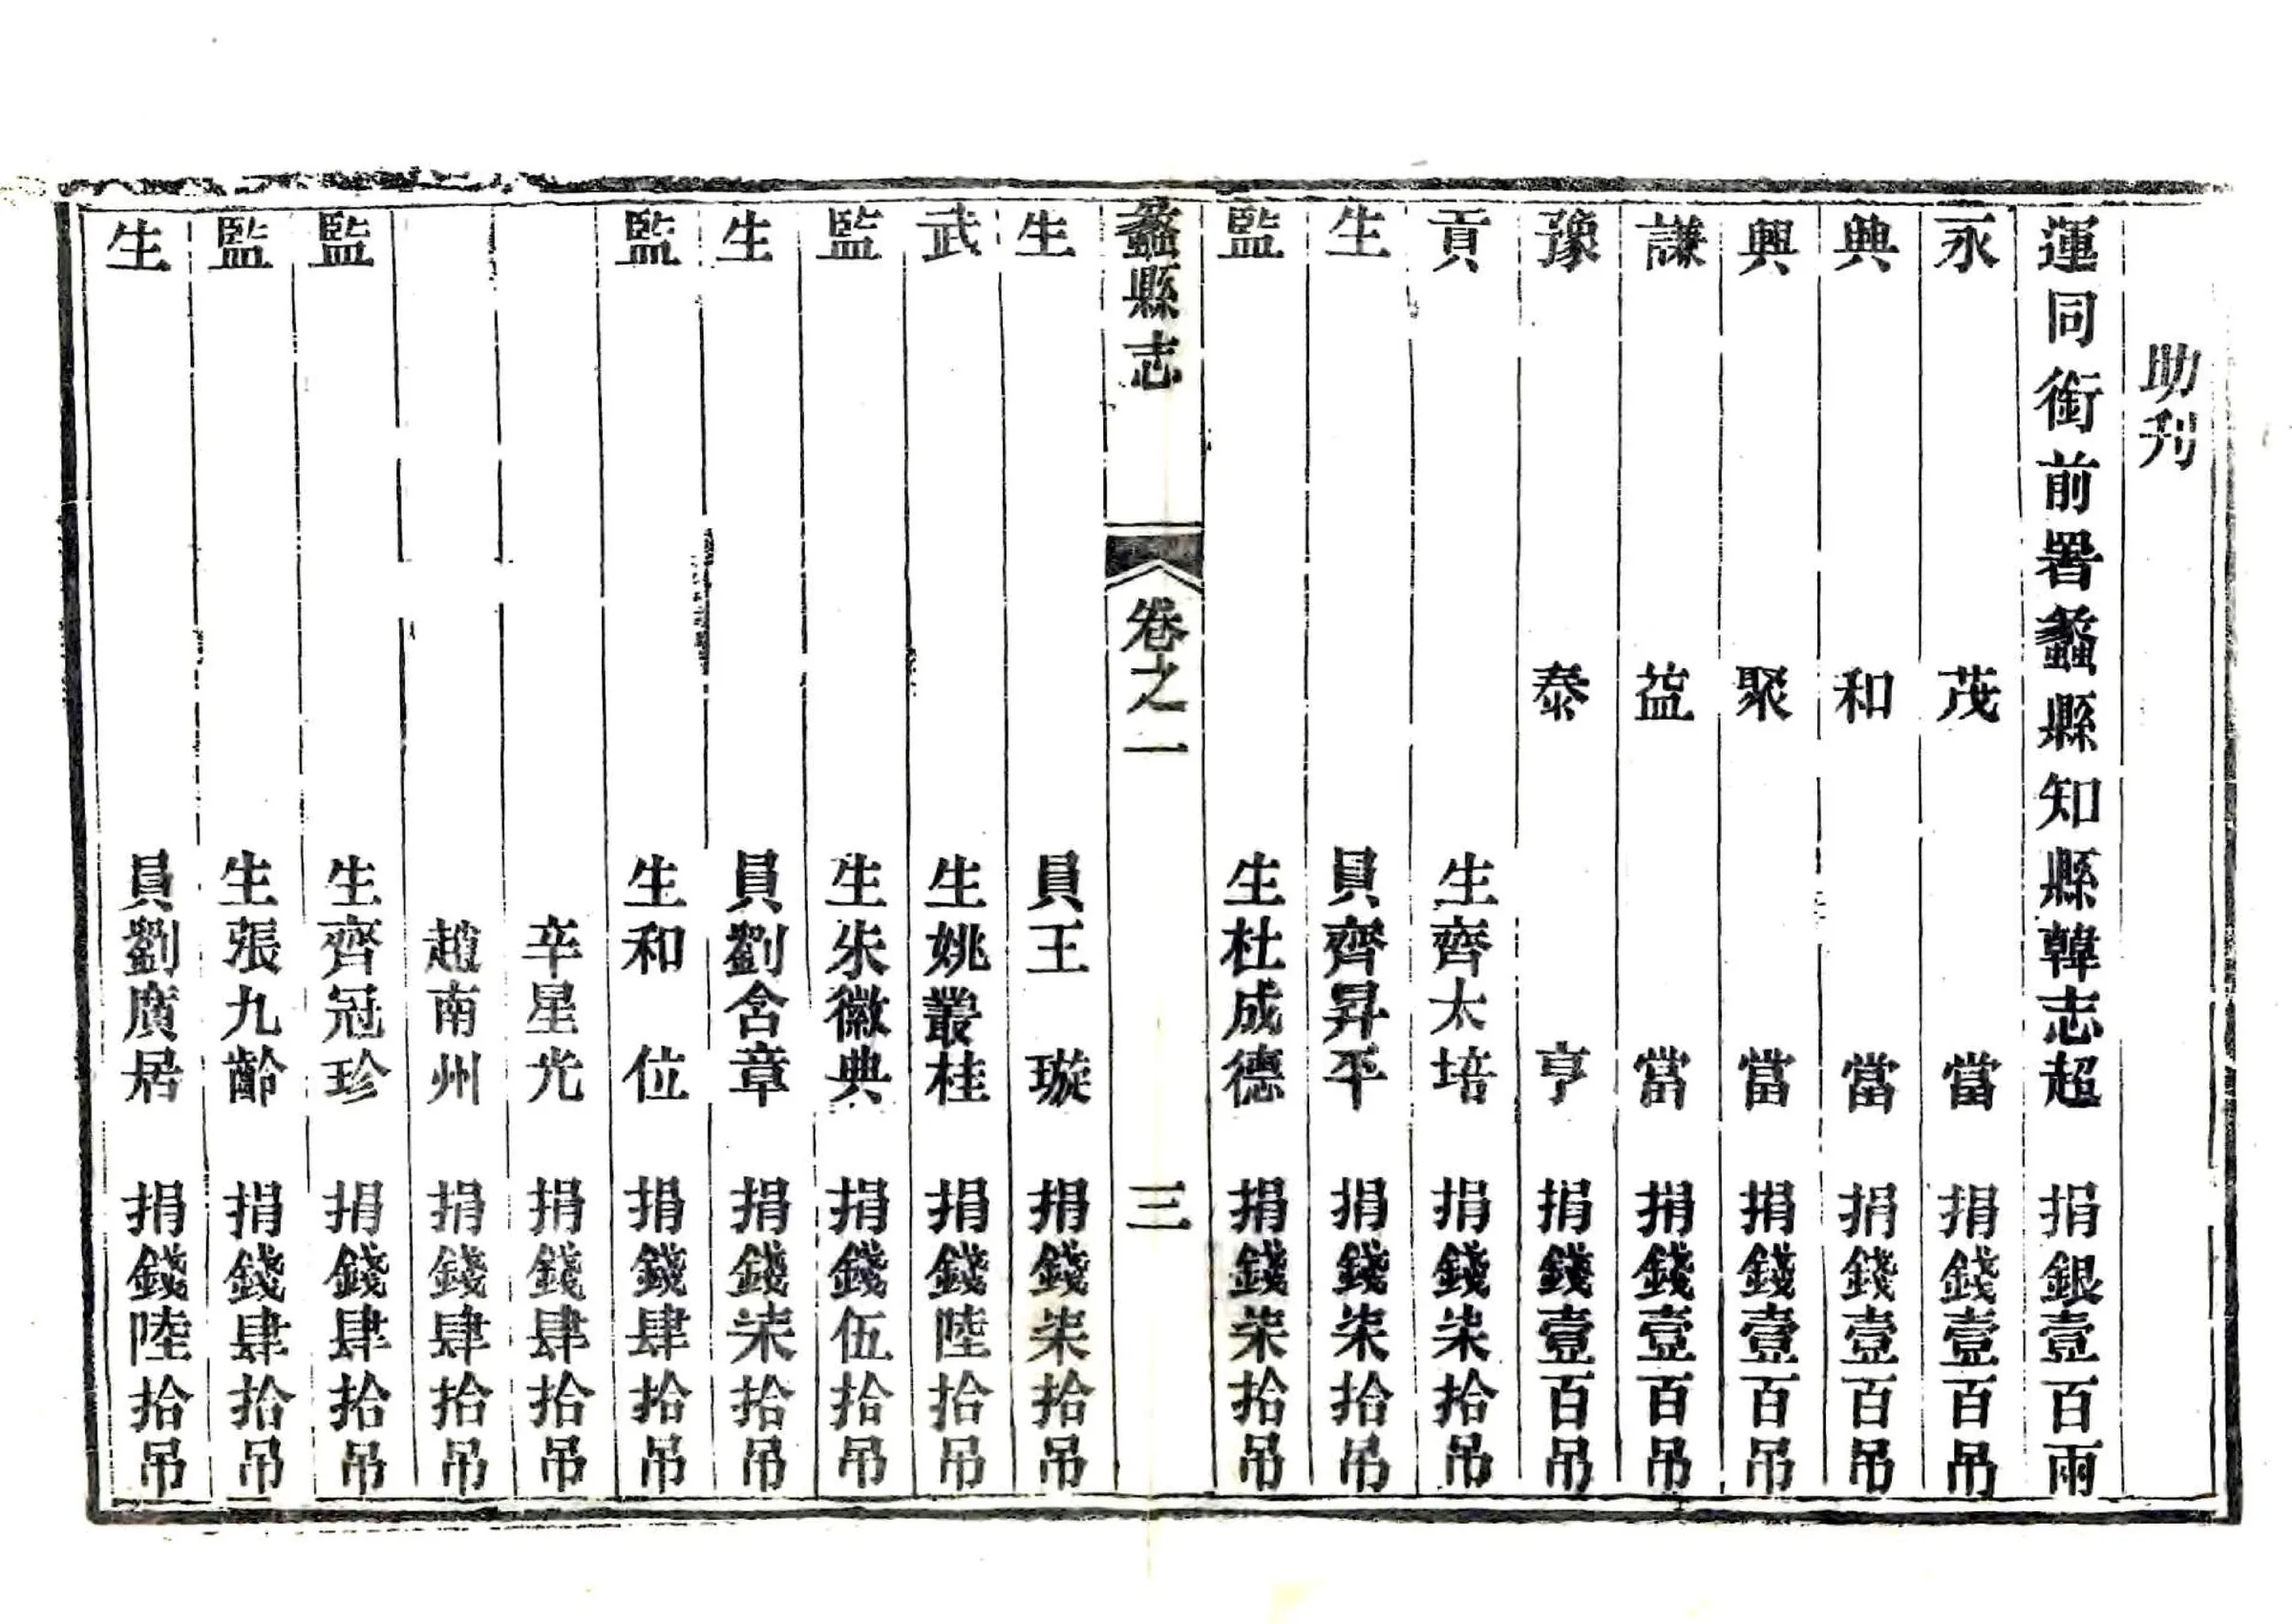 助刋
運同銜前署蠡縣知縣韓志超 捐銀壹百兩
永茂當 捐錢壹百吊
興和當 捐錢壹百吊
興聚當 捐錢壹百吊
謙益當 捐錢壹百吊
豫泰亨 捐錢壹百吊
貢生齊太培 捐錢柒拾吊
生員齊昇平 捐錢柒拾吊
監生杜成德 捐錢柒拾吊
蠡縣志 卷之一 三
生員王璇 捐錢柒拾吊
武生姚叢桂 捐錢陸拾吊
監生朱徽典 捐錢伍拾吊
生員劉含章 捐錢柒拾吊
監生和位 捐錢肆拾吊
辛星光 捐錢肆拾吊
趙南州 捐錢肆拾吊
監生齊冠珍 捐錢肆拾吊
監生張九齡 捐錢肆拾吊
生員劉廣居 捐錢陸拾吊